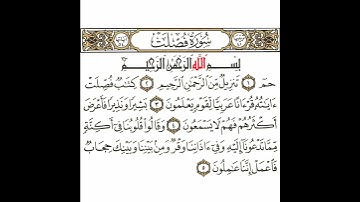 سُورَةُ فُصِّلَتْ
بِسْمِ اللَّهِ الرَّحْمَٰنِ الرَّحِيمِ
حمٓ ١ تَنزِيلٌ مِّنَ الرَّحْمَٰنِ الرَّحِيمِ ٢ كِتَٰبٌ فُصِّلَتْ
ءَايَٰتُهُۥ قُرْءَانًا عَرَبِيًّا لِّقَوْمٍ يَعْلَمُونَ ٣ بَشِيرًا وَنَذِيرًا فَأَعْرَضَ
أَكْثَرُهُمْ فَهُمْ لَا يَسْمَعُونَ ٤ وَقَالُوا۟ قُلُوبُنَا فِىٓ أَكِنَّةٍ
مِّمَّا تَدْعُونَآ إِلَيْهِ وَفِىٓ ءَاذَانِنَا وَقْرٌ وَمِنۢ بَيْنِنَا وَبَيْنِكَ حِجَابٌ
فَٱعْمَلْ إِنَّنَا عَٰمِلُونَ ٥